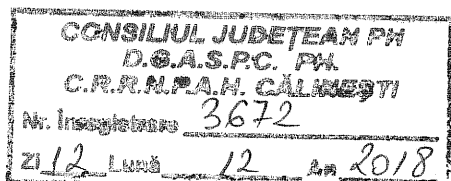 CONSILIUL JUDEȚEAM PH
D.G.A.S.P.C. PH.
C.R.R.N.P.A.H. CĂLINEȘTI
Nr. Înregistrare 3672
ZI 12 Lună 12 An 2018